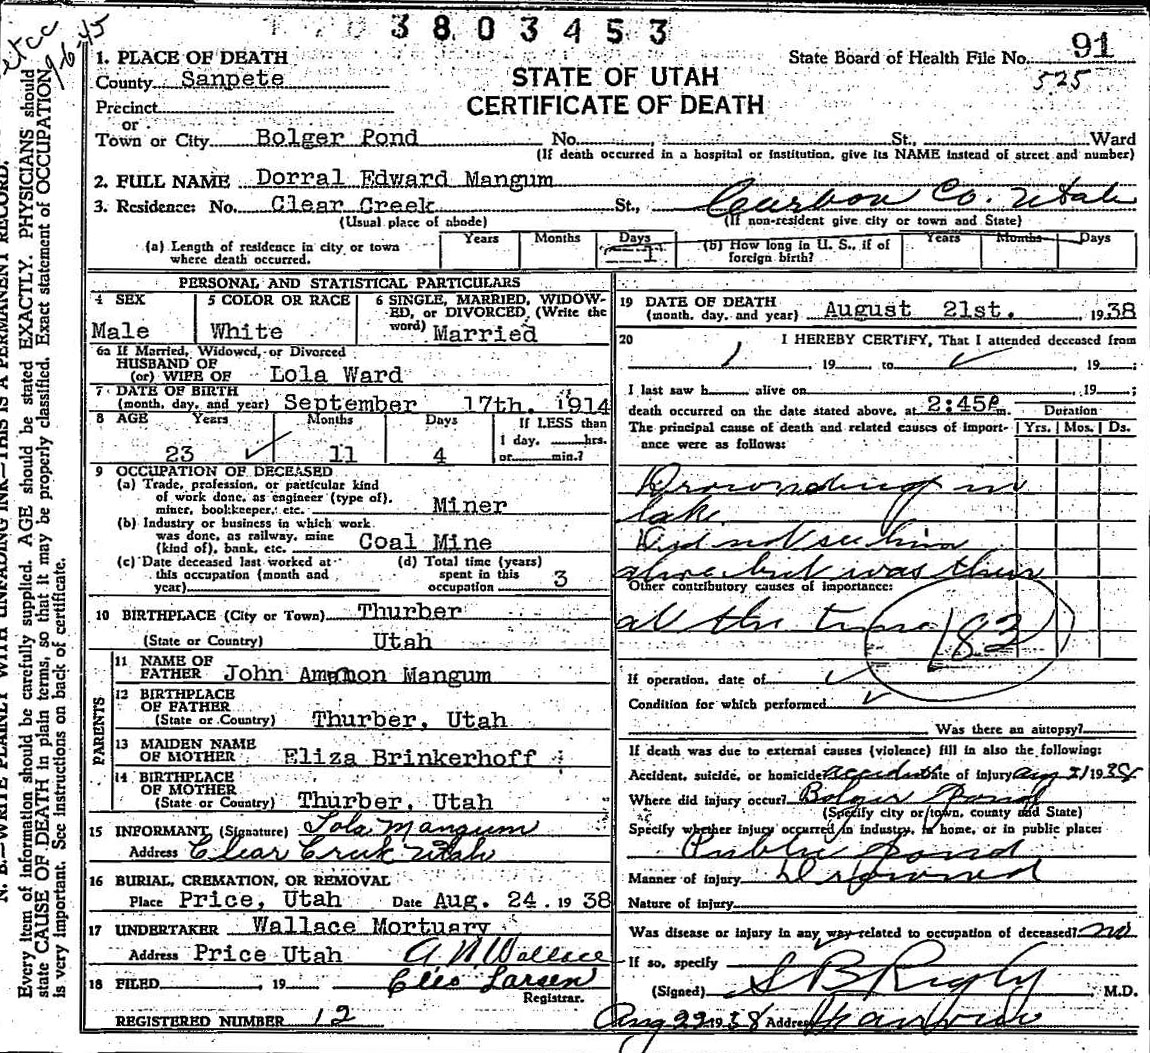 3803453
State Board of Health File No. 91
525
STATE OF UTAH
CERTIFICATE OF DEATH
1. PLACE OF DEATH
County Sanpete
Precinct
or
Town or City Bolger Pond No. St., Ward
(If death occurred in a hospital or institution, give its NAME instead of street and number)
2. FULL NAME Dorral Edward Mangum
3. Residence: No. Clear Creek St., Carbon Co. Utah
(Usual place of abode) (If non-resident give city or town and State)
(a) Length of residence in city or town where death occurred. Years Months Days 1 (b) How long in U. S., if of foreign birth? Years Months Days
PERSONAL AND STATISTICAL PARTICULARS
4 SEX Male
5 COLOR OR RACE White
6 SINGLE, MARRIED, WIDOWED, or DIVORCED (Write the word) Married
6a If Married, Widowed, or Divorced
HUSBAND OF
(or) WIFE OF Lola Ward
7 DATE OF BIRTH
(month, day, and year) September 17th. 1914
8 AGE Years 23 Months 11 Days 4 If LESS than 1 day, hrs. or min.?
9 OCCUPATION OF DECEASED
(a) Trade, profession, or particular kind
of work done, as engineer (type of),
miner, bookkeeper, etc. Miner
(b) Industry or business in which work
was done, as railway, mine
(kind of), bank, etc. Coal Mine
(c) Date deceased last worked at this occupation (month and year)
(d) Total time (years) spent in this occupation 3
10 BIRTHPLACE (City or Town) Thurber
(State or Country) Utah
PARENTS
11 NAME OF
FATHER John Ammon Mangum
12 BIRTHPLACE
OF FATHER
(State or Country) Thurber, Utah
13 MAIDEN NAME
OF MOTHER Eliza Brinkerhoff
14 BIRTHPLACE
OF MOTHER
(State or Country) Thurber, Utah
15 INFORMANT, (Signature) Lola Mangum
Address Clear Creek Utah
16 BURIAL, CREMATION, OR REMOVAL
Place Price, Utah Date Aug. 24. 1938
17 UNDERTAKER Wallace Mortuary
Address Price Utah A W Wallace
18 FILED , 19 Cleo Larsen
Registrar.
REGISTERED NUMBER 12
19 DATE OF DEATH
(month, day, and year) August 21st. , 1938
20 I HEREBY CERTIFY, That I attended deceased from
, 19 to , 19 ;
I last saw h alive on , 19 ;
death occurred on the date stated above, at 2:45P m. Duration
The principal cause of death and related causes of importance were as follows: Yrs. Mos. Ds.
Drownding in
lake
Did not see him
alive but was then
Other contributory causes of importance:
all the time
183
If operation, date of
Condition for which performed
Was there an autopsy?
If death was due to external causes (violence) fill in also the following:
Accident, suicide, or homicide accident Date of injury Aug 21 1938
Where did injury occur? Bolger Pond
(Specify city or town, county and State)
Specify whether injury occurred in industry, in home, or in public place:
Public Pond
Manner of injury Drownd
Nature of injury
Was disease or injury in any way related to occupation of deceased? no
If so, specify
(Signed) S B Rigby M.D.
Aug 22 1938 Address
N. B.—WRITE PLAINLY WITH UNFADING INK—THIS IS A PERMANENT RECORD.
Every item of information should be carefully supplied. AGE should be stated EXACTLY. PHYSICIANS should
state CAUSE OF DEATH in plain terms, so that it may be properly classified. Exact statement of OCCUPATION
is very important. See instructions on back of certificate.